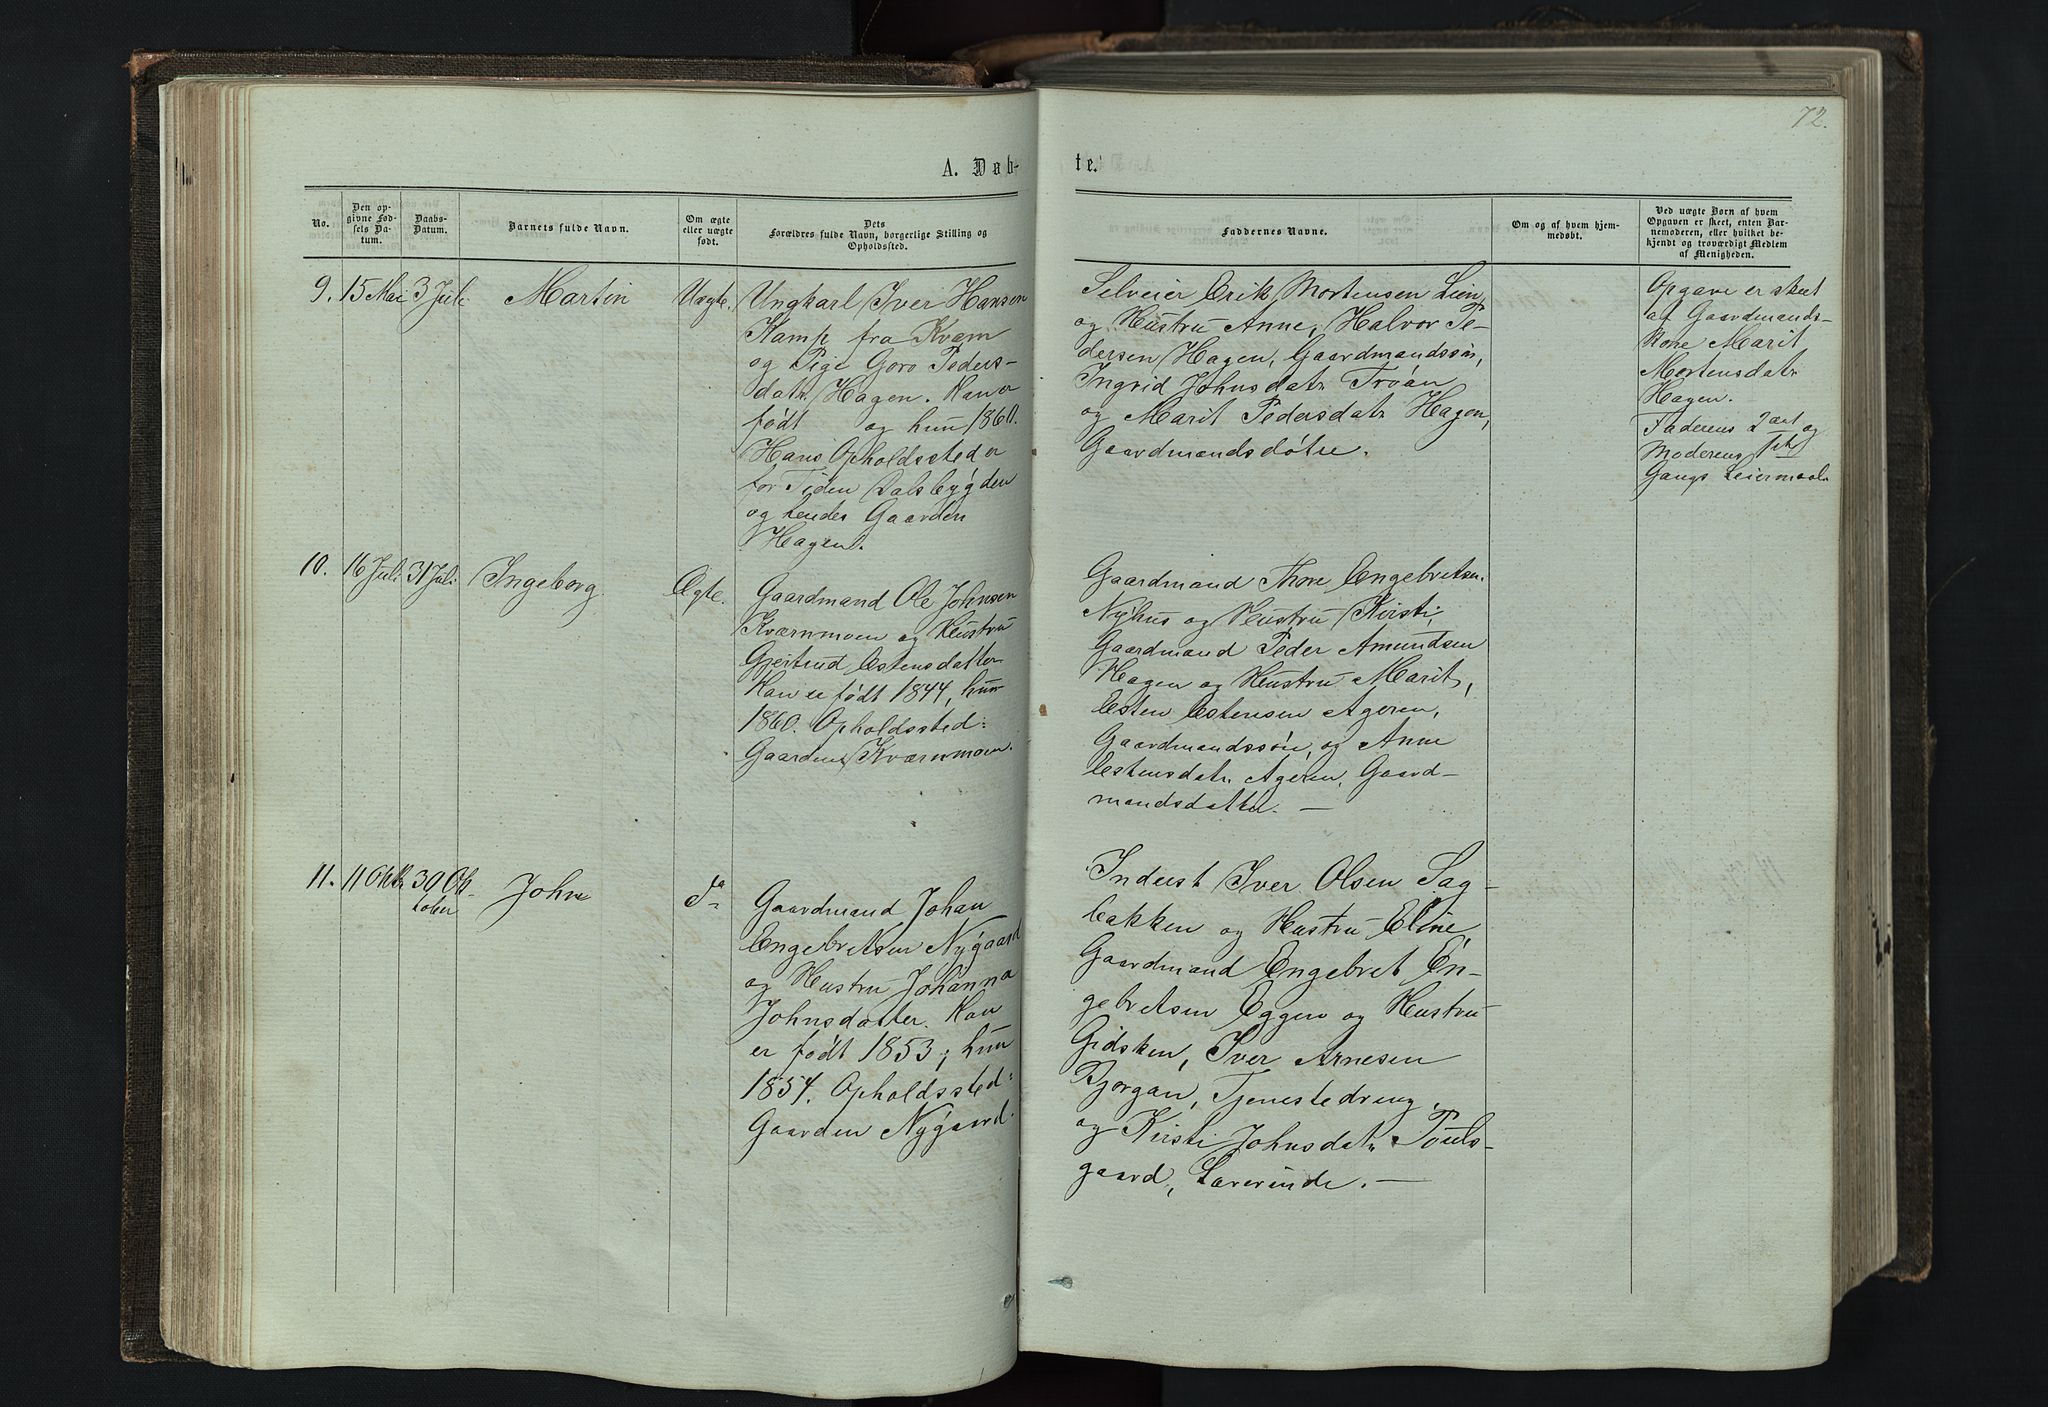 72.
A. Døb-
te.
No.
Den op-
givne Fød-
sels Da-
tum.
Daabs-
Datum.
Barnets fulde Navn.
Om ægte
eller uægte
født.
Dets
Forældres fulde Navn, borgerlige Stilling og
Opholdssted.
Faddernes Navne.
Om og af hvem hjem-
medøbt.
Ved uægte Børn af hvem
Opgaven er skeet, enten Bar-
nemoderen, eller hvilket be-
kjendt og troværdigt Medlem
af Menigheden.
9. 15 Mai 3 Juli Martin Uægte.
Ungkarl Iver Hansen
Kamp fra Kvam
og Pige Goro Peders-
datr. Hagen. Han er
født og hun 1860.
Hans Opholdssted er
for Tiden Dalsbygden
og hendes Gaarden
Hagen.
Selveier Erik Mortensen Lien
og Hustru Anne, Halvor Pe-
dersen Hagen, Gaardmandssøn,
Ingrid Johnsdatr Trøan
og Marit Pedersdatr Hagen,
Gaardmandsdøtre.
Opgave er skeet
af Gaardmands-
kone Marit
Mortensdatr
Hagen.
Faderens 2det og
Moderens 1ste
Gangs Leiermaal.
10. 16 Juli 31 Juli Ingeborg Ægte.
Gaardmand Ole Johnsen
Kværnmoen og Hustru
Gjertrud Estensdatter.
Han er født 1844, hun
1860. Opholdssted:
Gaarden Kværnmoen.
Gaardmand Thore Engebretsen
Nyhus og Hustru Kirsti,
Gaardmand Peder Amundsen
Hagen og Hustru Marit,
Esten Estensen Ageren,
Gaardmandssøn, og Anne
Estensdatr Ageren, Gaard-
mandsdatter. —
11. 11 Oktr 30 Ok-
tober
John
Do
Gaardmand Johan
Engebretsen Nygaard
og Hustru Johanna
Johnsdatter. Han
er født 1853, hun
1854. Opholdssted:
Gaarden Nygaard.
Inderst Iver Olsen Sag-
bakken og Hustru Eline,
Gaardmand Engebret En-
gebretsen Eggen og Hustru
Gidsken, Iver Arnesen
Bjørgan, Tjenestedreng,
og Kirsti Johnsdatr Pouls-
gaard, Lærerinde. —